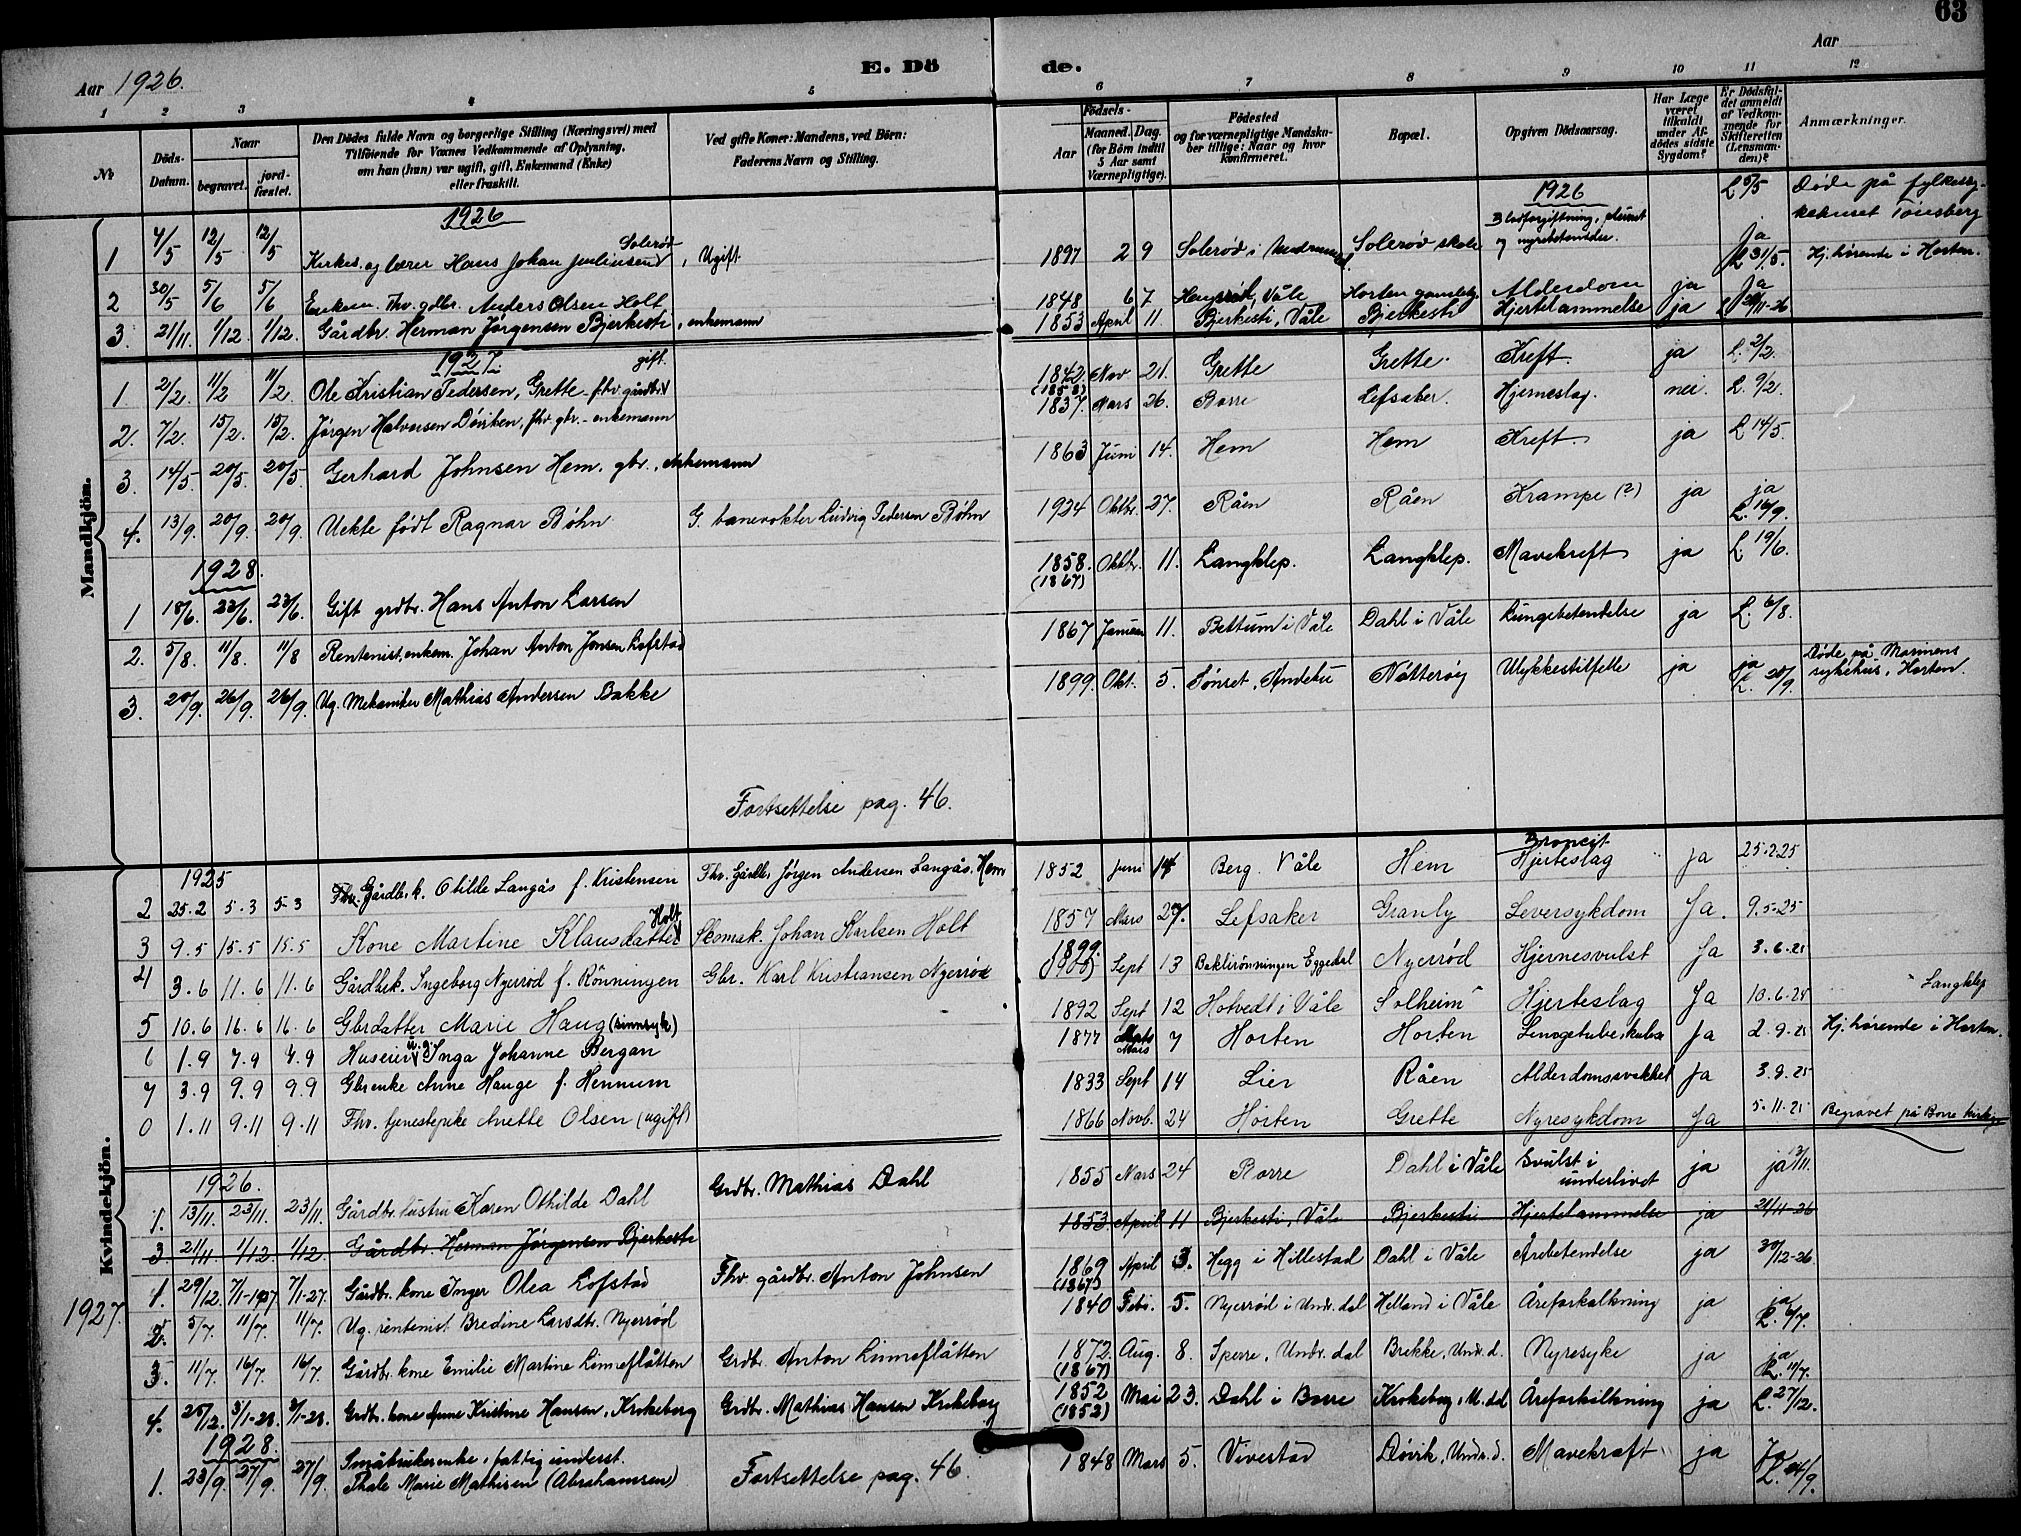 63
Aar 1926.
E. Dö de.
Aar
1 2 3 4 5 6 7 8 9 10 11 12
№
Döds-Datum.
Naar
begravet.
jord-fæstet.
Den Dødes fulde Navn og borgerlige Stilling (Næringsvei) med
Tilföiende for Voxnes Vedkommende af Oplysning,
om han (hun) var ugift, gift, Enkemand (Enke)
eller fraskilt.
Ved gifte Koner: Mandens, ved Börn:
Faderens Navn og Stilling.
Födsels-
Aar
Maaned. Dag.
(for Börn indtil
5 Aar samt
Værnepligtige).
Födested
og for værnepligtige Mandska-
ber tillige: Naar og hvor
Konfirmeret.
Bopæl.
Opgiven Dödsaarsag.
Har Læge
været
tilkaldt
under Af-
dødes sidste
Sygdom?
Er Dödsfal-
det anmeldt
af Vedkom-
mende for
Skifteretten
(Lensman-
den)?
Anmærkninger.
Mandkjön.
1926
1926
1 4/5 12/5 12/5 Kirkes. og lærer Hans Johan Juliussen Solerød, Ugift 1897 2 9 Solerød i Solerød skole Blodforgiftning, og nyrebetendelse. ja L 5/5 Døde på fylkessy-kehuset Tönsberg
2 30/5 5/6 5/6 Enkem. fhv. gdbr. Anders Olsen Holt 1848 6 7 Våle Horten gamleh. Alderdom ja ja L 31/5. Hj.hørende i Horten.
3. 21/11. 1/12. 1/12. Gårdbr. Herman Jørgensen Bjerkesti, enkemann 1853 April 11 Bjerkesti, Våle Bjerkesti Hjertelammelse ja ja 21/11-26
1927
1. 2/2. 11/2 11/2. Ole Kristian Pedersen, Grette - fhv. gårdbr. gift. 1842 Nov 21. Grette Grette. Kreft. ja L. 2/2.
2. 7/2. 15/2. 15/2. Jørgen Halvorsen Döviken, fhv. gbr. - enkemann (1858) 1837. Mars 26. Borre Lefsaker. Hjerneslag. nei. L. 9/2.
3. 14/5. 20/5. 20/5. Gerhard Johnsen Hem. gbr., enkemann 1863 Juni 14. Hem Hem Kreft ja L 14/5.
4. 13/9. 20/9. 20/9. Uekte født Ragnar Bøhn G. banevokter Ludvig Pedersen Bøhn 1924 Oktbr. 27. Råen Råen Krampe (?) ja ja L. 16/9.
1928.
1 18/6. 23/6. 23/6. Gift grdbr. Hans Anton Larsen 1858. (1867) Oktbr. 11. Langklep. Langklep. Mavekreft ja L. 19/6.
2. 5/8. 11/8. 11/8 Rentenist, enkem. Johan Anton Jonsen Lofstad 1867 Januar 11. Bettum i Våle Dahl i Våle Lungebetendelse ja L. 6/8.
3. 20/9. 26/9. 26/9. Ug. Mekaniker Mathias Andersen Bakke 1899. Okt. 5. Sönset, Andebu Nötteröy Ulykkestilfelle ja ja L. 20/9. Døde på Marinens sykehus, Horten.
Fortsettelse pag. 46.
Kvindekjön.
1925
2 25.2 5.3 5-3 Fhv. Gårdbr.k. Othilde Langås f. Kristensen Fhv. Gårdbr. Jørgen Andersen Langås, Hem 1852 Juni 14 Berg. Våle Hem Hjerteslag Ja 25.2.25
3 9.5 15.5 15.5 Kone Martine Klausdatter Holt Skomak. Johan Karlsen Holt 1857 Mars 27. Lefsaker Granly Leversykdom Ja. 9.5-25
4 3.6 11.6 11.6 Gårdbr.k. Ingeborg Nyerrød f. Rönningen Gbr. Karl Kristiansen Nyerrød 1899. (1900) Sept 13 Baklirönningen Eggedal Nyerrød Hjernesvulst Ja 3.6.25
5 10.6 16.6 16.6 Gbrdatter Marie Haug (sinnsyk) 1892 Sept 12 Hotvedt i Våle Solheim Hjerteslag Ja 10.6.25 Langklep
6 1.9 7.9 7.9 Huseier u.g. Inga Johanne Bergan 1877 Mars 7 Horten Horten Ja 2.9.25 Hj.hørende i Horten.
7 3.9 9.9 9.9 Gbr.enke Anne Hauge f. Hennum 1833 Sept 14 Lier Råen Alderdomssvakhet Ja 3.9.25
1.11 9.11 9.11 Fhv. tjenestepike Anette Olsen (ugift) 1866 Novb. 24 Horten Grette Nyresykdom Ja 5.11.25 Begravet på Borre kirkeg.
1926.
1. 13/11. 23/11. 23/11. Gårdbr. hustru Karen Othilde Dahl Grdbr. Mathias Dahl 1855 Mars 24 Borre Dahl i Våle Svulst i underlivet ja ja 13/11.
3 21/11 1/12. 1/12. Gårdbr. Herman Jørgensen Bjerkesti 1853 April 11 Bjerkesti, Våle Bjerkesti Hjertelammelse ja 21/11-26
1927.
1. 29/12. 7/1-1927 7/1-27. Gårdbr. kone Inger Olea Lofstad Fhv. gårdbr. Anton Johnsen 1869 (1867) April 3. Hegg i Hillestad Dahl i Våle Årebetendelse ja 30/12-26
2. 5/7. 11/7. 11/7. Ug. rentenist. Bredine Larsdtr. Nyerrød 1840 Febr. 5. Nyerrød i Undr.dal Helland i Våle Åreforkalkning ja ja L. 6/7.
3. 11/7. 16/7. 16/7. Gårdbr. kone Emilie Martine Linneflåtten Grdbr. Anton Linneflåtten 1872. (1867) Aug. 8. Sperre, Undr.dal Brekke, Undr.d. Nyresyke ja ja L. 11/7.
4. 25/12. 3/1-28. 3/1-28. Grdbr. kone Anne Kristine Hansen, Krokeborg Grdbr. Mathias Hansen Krokeborg 1852 (1852) Mai 23. Dahl i Borre Krokeborg, U.dal Åreforkalkning ja L. 27/12.
1928.
1. 23/9. 27/9. 27/9. Småbrukerenke, fattigunderst. Thale Marie Mathisen (Abrahamsen) Fortsettelse pag. 46. 1848 Mars 5. Vivestad Døvik, Undr.d. Mavekræft ja Ja L. 24/9.